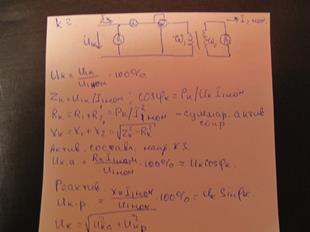 КЗ I₁ₖ → I₂ ном.
Uₖ ω₁ ω₂
Uₖ = U₁ₖ/U₁ном · 100%
Zₖ = U₁ₖ/I₁ном ; cosφₖ = Pₖ/Uₖ I₁ном
Rₖ = R₁ + R₂' = Pₖ/I²₁ном – суммар. актив
сопр.
Xₖ = X₁ + X₂' = √(Zₖ² - Rₖ²)
Актив. составл. напр. КЗ
Uк.а. = RₖI₁ном/U₁ном · 100% = Uₖ cosφₖ.
Реактив.
Uк.р. = XₖI₁ном/U₁ном · 100% = Uₖ Sinφₖ
Uₖ = √(U²ка + U²кр)